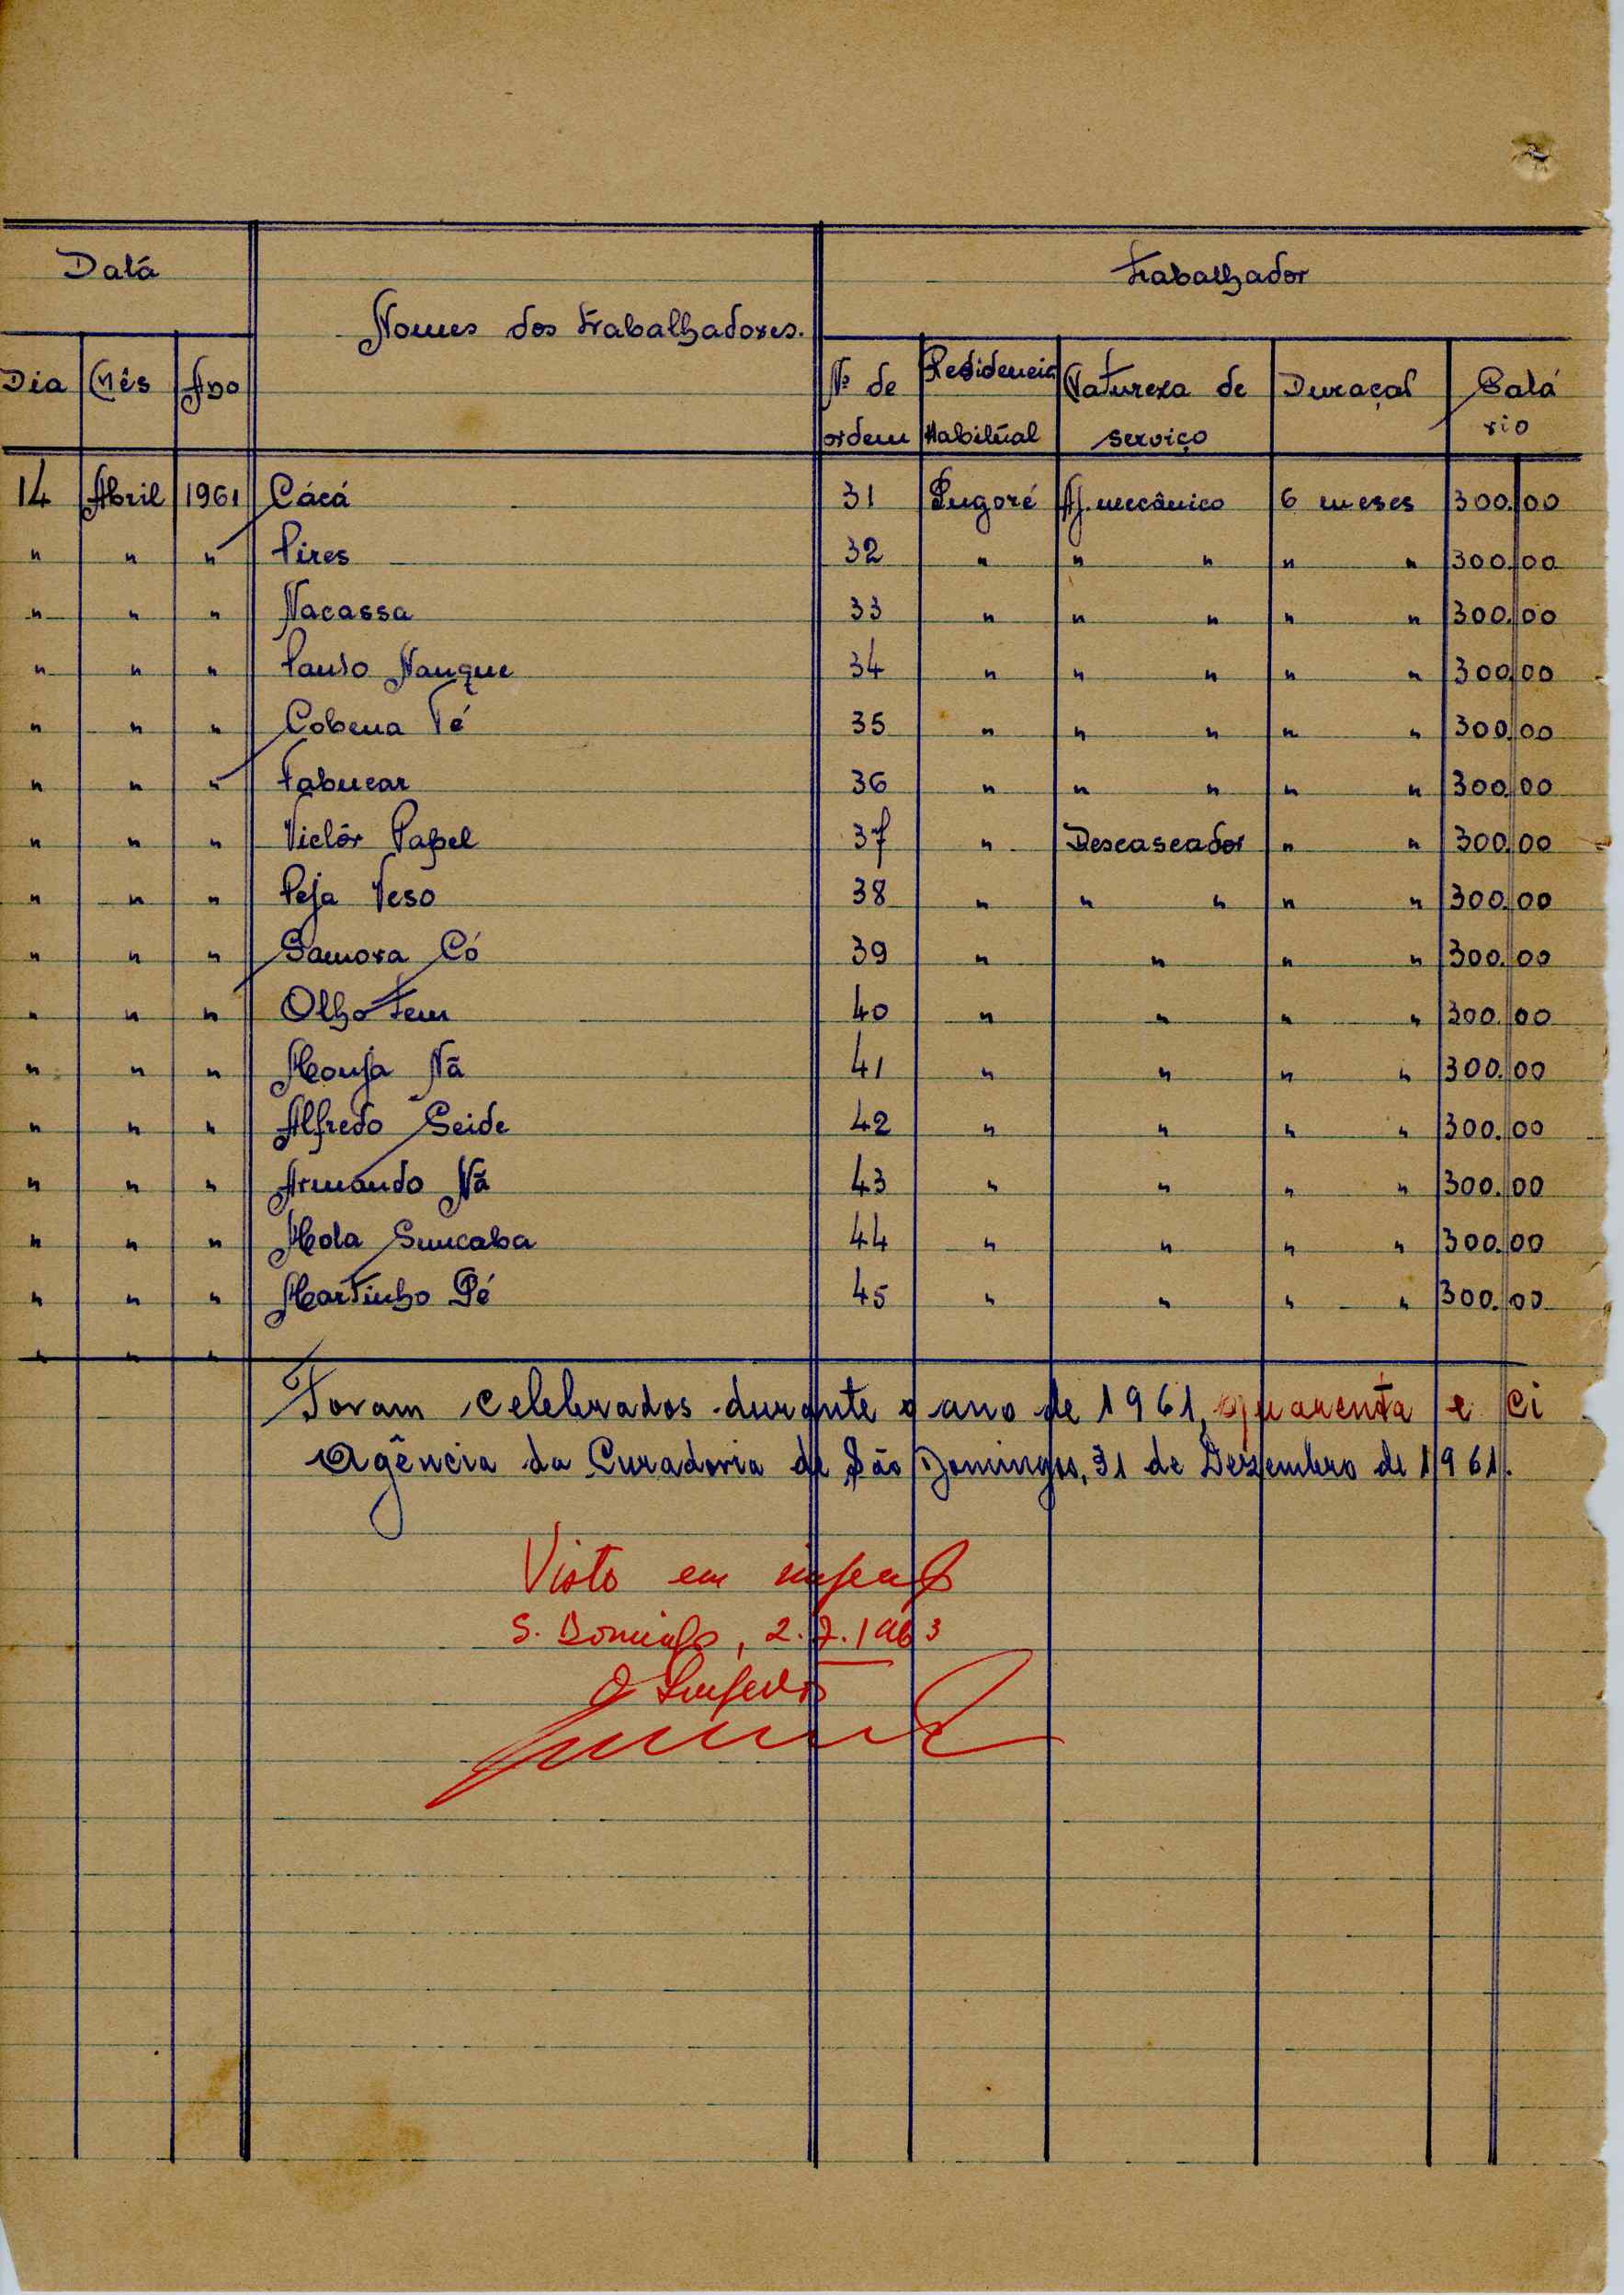 Datá Trabalhador
Nomes dos Trabalhadores.
Dia Mês Ano Nº de ordem Residencia Habitúal Natureza de serviço Duraçaõ Salário
14 Abril 1961 Cácá 31 Pugoré Aj. mecânico 6 meses 300.00
" " " Pires 32 " " " " " 300.00
" " " Nacassa 33 " " " " " 300.00
" " " Paulo Nanque 34 " " " " " 300.00
" " " Cobena Té 35 " " " " " 300.00
" " " Tabucar 36 " " " " " 300.00
" " " Victôr Papel 37 " Descascador " " 300.00
" " " Peja Veso 38 " " " " " 300.00
" " " Samora Có 39 " " " " 300.00
" " " Olho Tem 40 " " " " 300.00
" " " Monja Nã 41 " " " " 300.00
" " " Alfredo Seide 42 " " " " 300.00
" " " Armando Nã 43 " " " " 300.00
" " " Mola Suncaba 44 " " " " 300.00
" " " Martinho Pé 45 " " " " 300.00
" " "
Foram celebrados durante o ano de 1961, quarenta e ci
Agência da Curadoria de São Domingos, 31 de Dezembro de 1961.
Visto em
S. Domingos, 2.7.1963
O